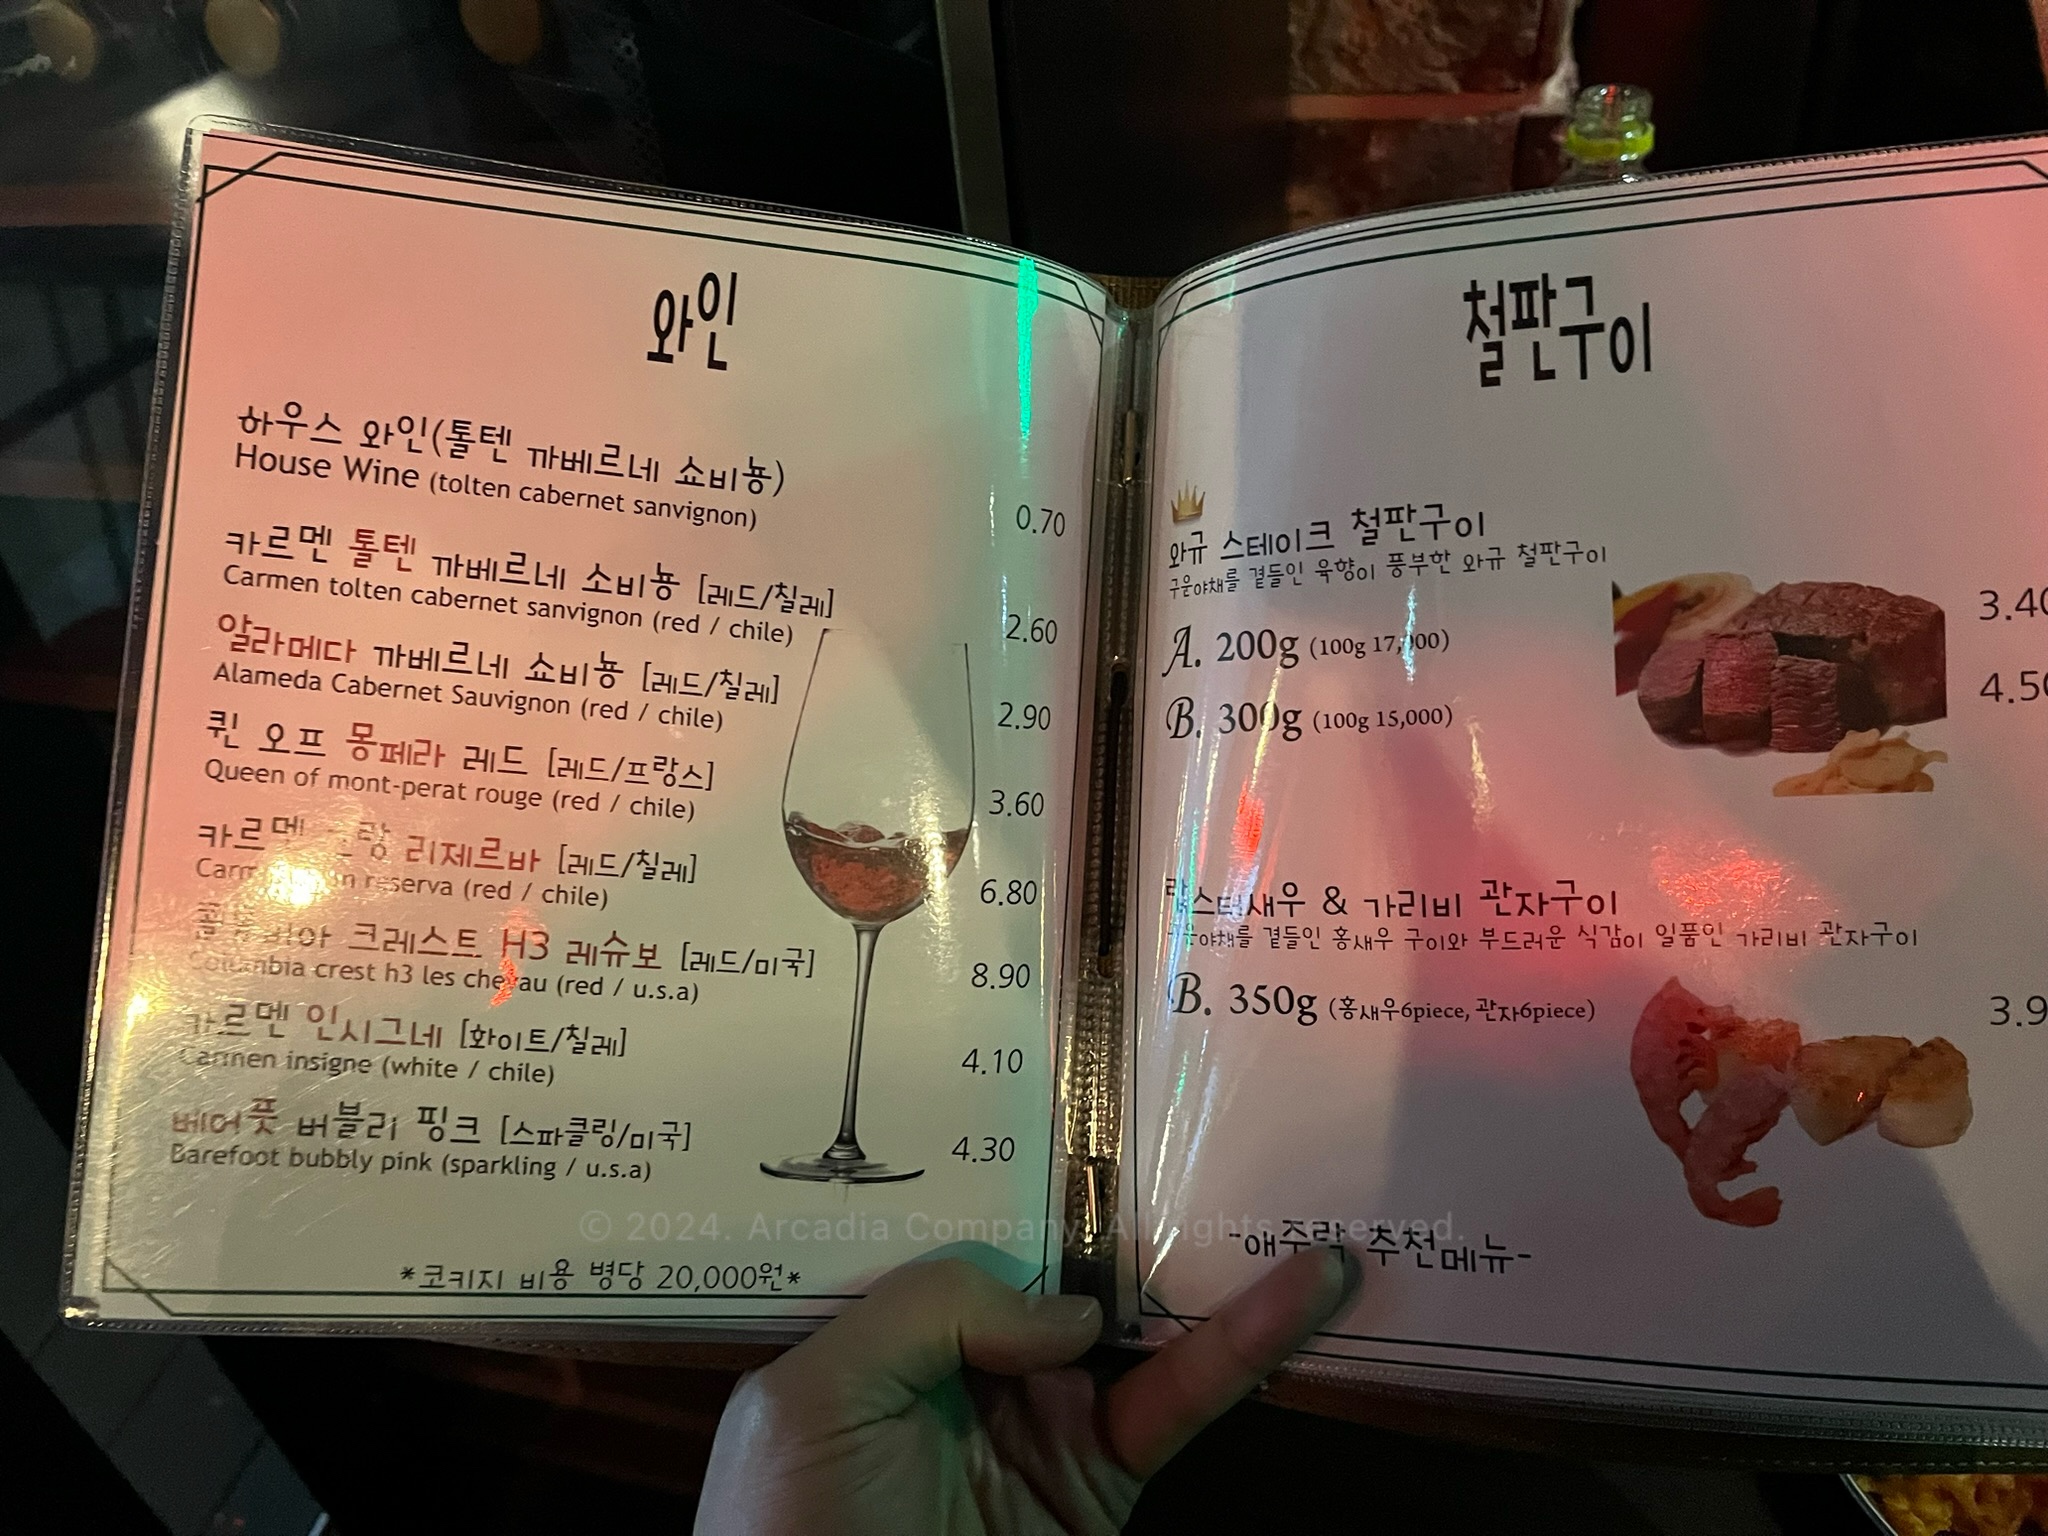 와인
하우스 와인(톨텐 까베르네 쇼비뇽)
House Wine (tolten cabernet sanvignon)
0.70
카르멘 톨텐 까베르네 소비뇽 [레드/칠레]
Carmen tolten cabernet sanvignon (red / chile)
2.60
알라메다 까베르네 쇼비뇽 [레드/칠레]
Alameda Cabernet Sauvignon (red / chile)
2.90
퀸 오프 몽페라 레드 [레드/프랑스]
Queen of mont-perat rouge (red / chile)
3.60
카르멘 리제르바 [레드/칠레]
reserva (red / chile)
6.80
크레스트 H3 레슈보 [레드/미국]
crest h3 les (red / u.s.a)
8.90
카르멘 인시그네 [화이트/칠레]
Carmen insigne (white / chile)
4.10
베어풋 버블리 핑크 [스파클링/미국]
Barefoot bubbly pink (sparkling / u.s.a)
4.30
*코키지 비용 병당 20,000원*
철판구이
와규 스테이크 철판구이
구운야채를 곁들인 육향이 풍부한 와규 철판구이
A. 200g (100g 17,000)
3.40
B. 300g (100g 15,000)
4.50
랍스터새우 & 가리비 관자구이
구운야채를 곁들인 홍새우 구이와 부드러운 식감이 일품인 가리비 관자구이
B. 350g (홍새우6piece, 관자6piece)
3.9
-애주락 추천메뉴-
© 2024. Arcadia Company. All rights reserved.